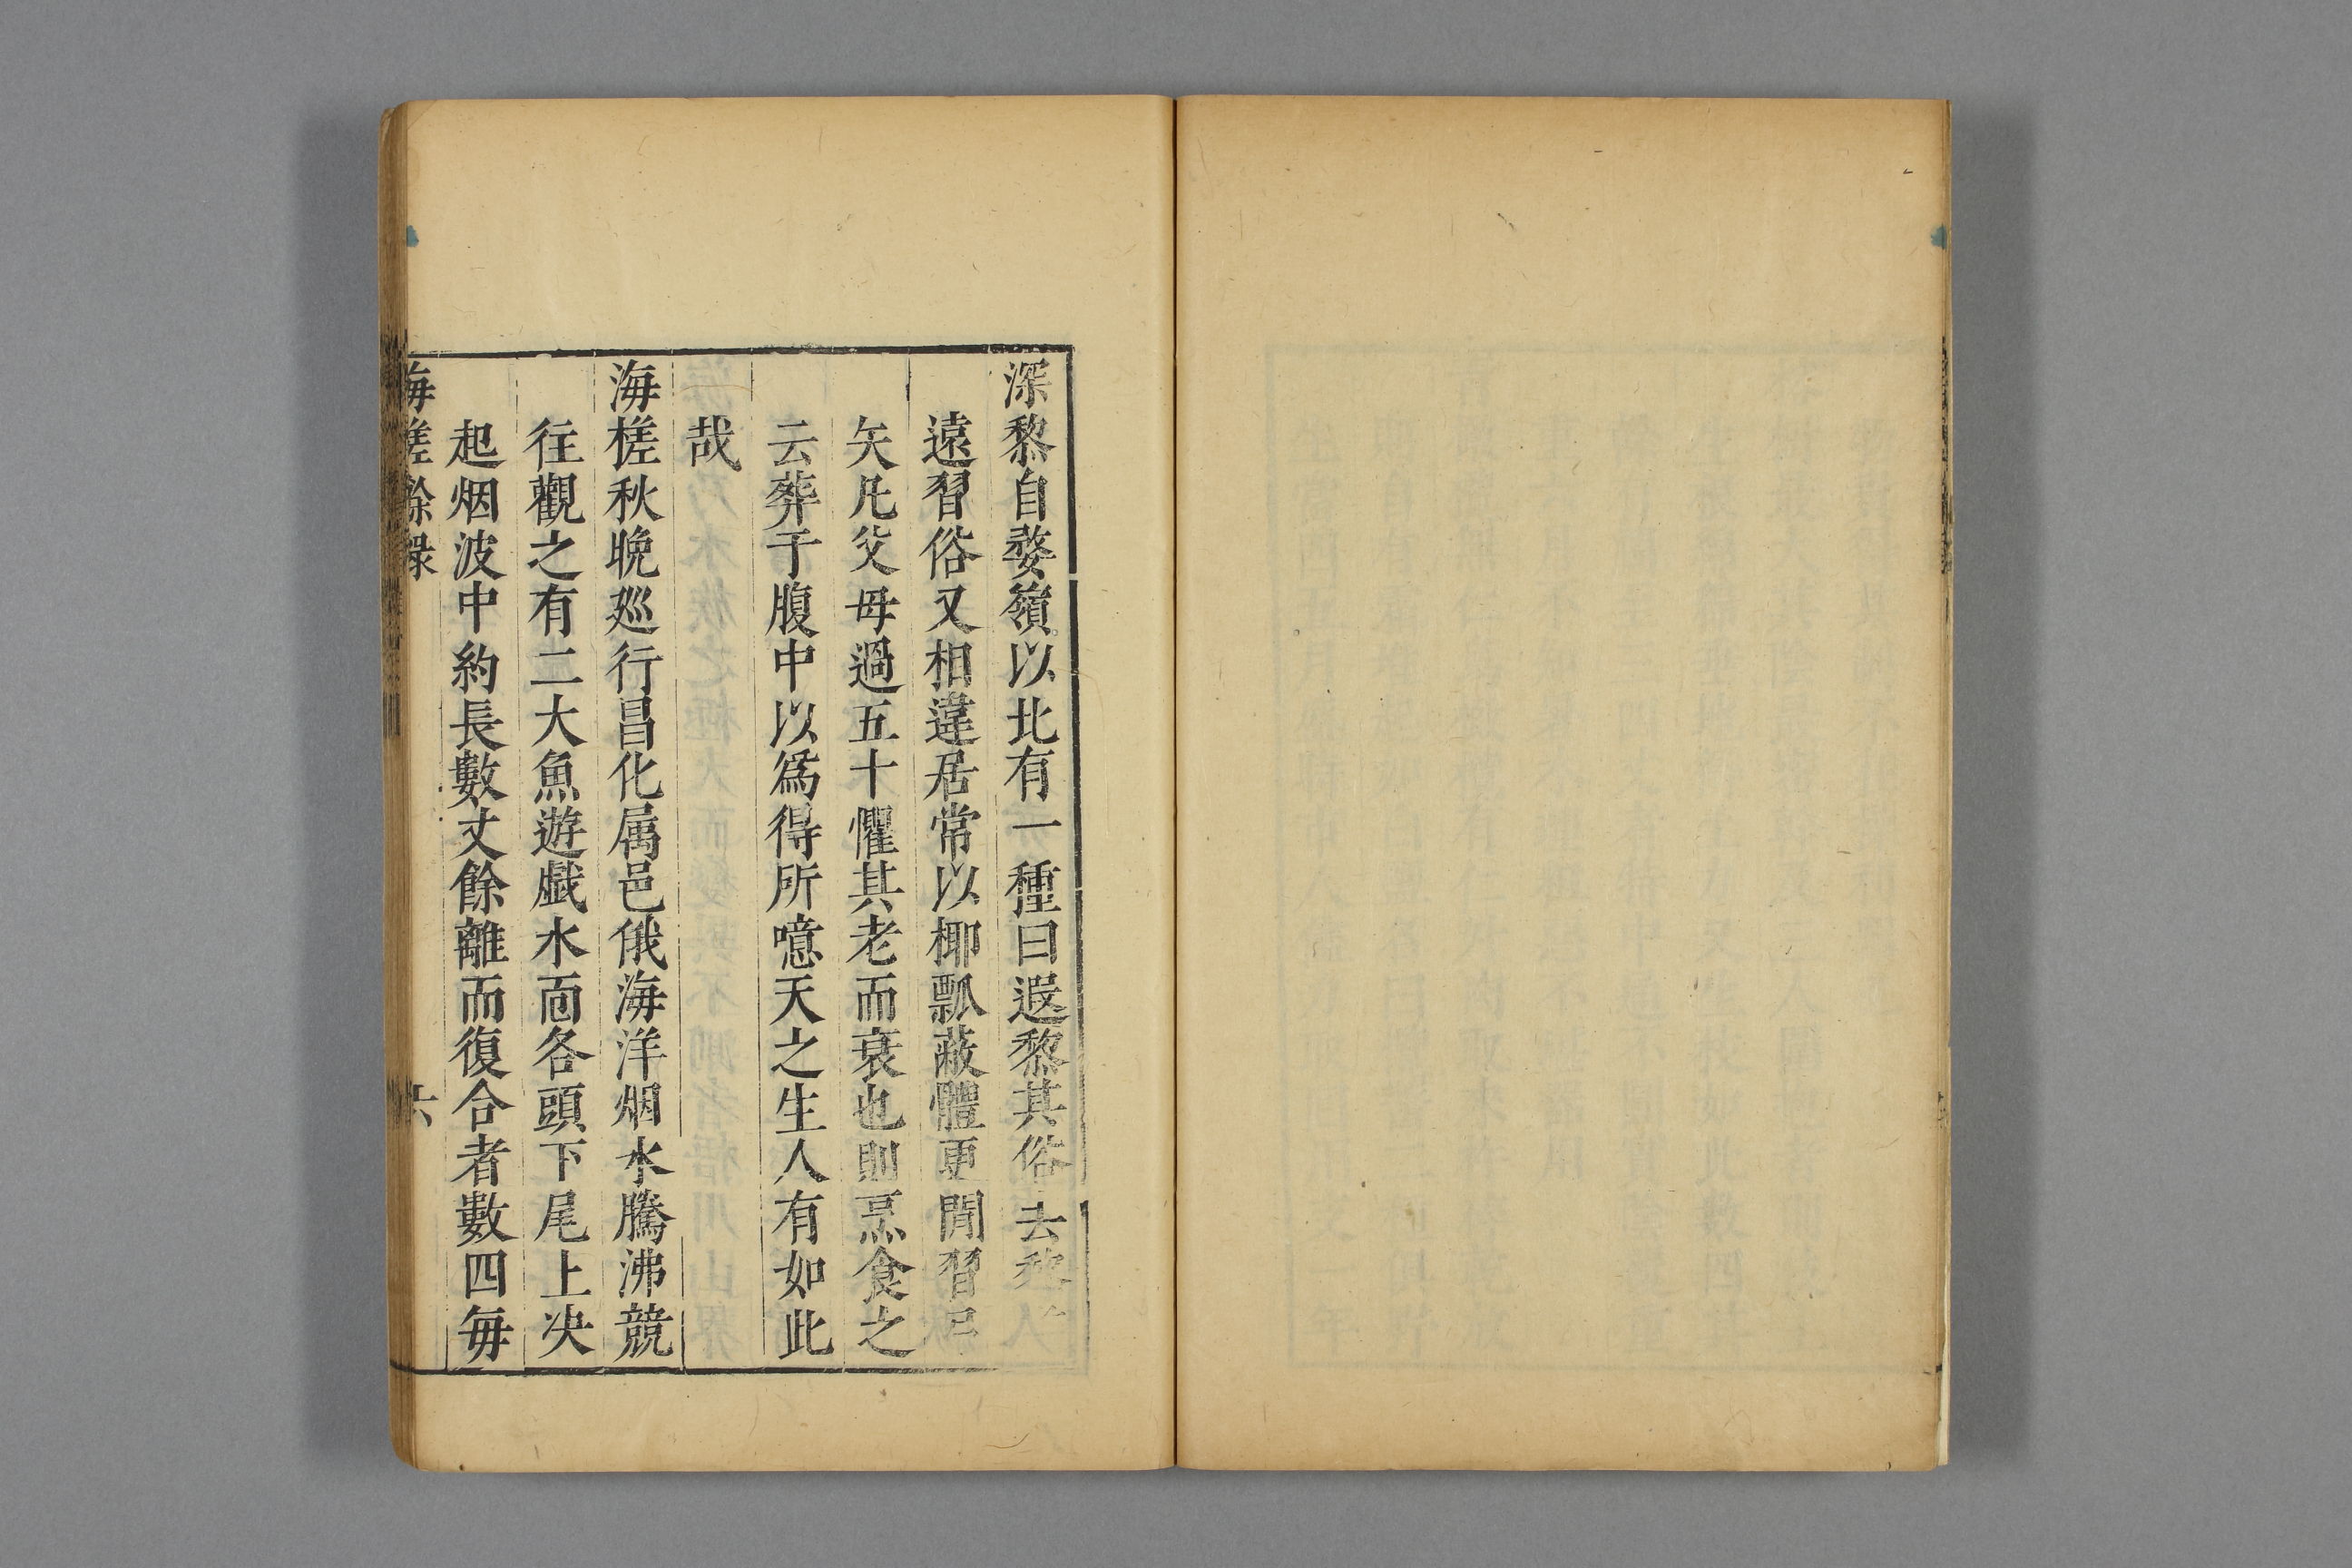 深黎自婺嶺以北有一種曰遐黎其俗去黎人
遠習俗又相違居常以椰瓢蔽體更閒習弓
矢凡父母過五十懼其老而衰也則烹食之
云葬于腹中以為得所噫天之生人有如此
哉
海槎秋晚廵行昌化属邑俄海洋烟水騰沸競
往觀之有二大魚遊戯水面各頭下尾上决
起烟波中約長數丈餘離而復合者數四每
海槎餘録
六